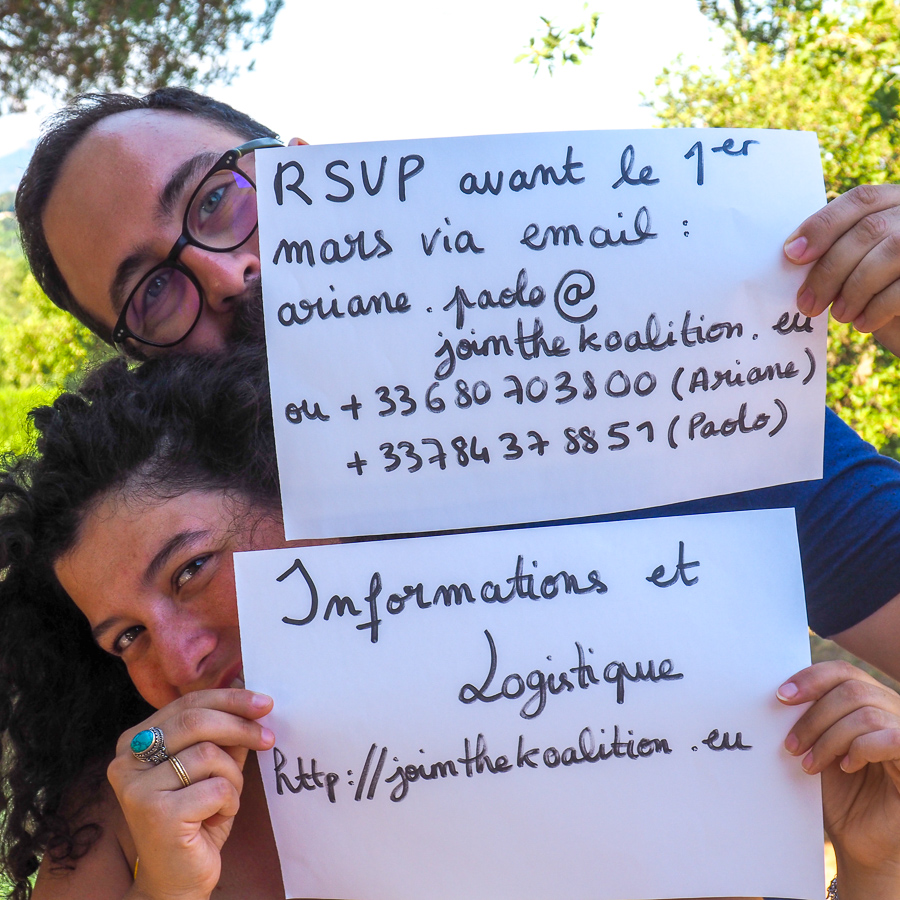 RSVP avant le 1er
mars via email :
ariane.paolo@
jointhekoalition.eu
ou +33 680 703800 (Ariane)
+33784 37 8851 (Paolo)
Informations et
Logistique
http://jointhekoalition.eu